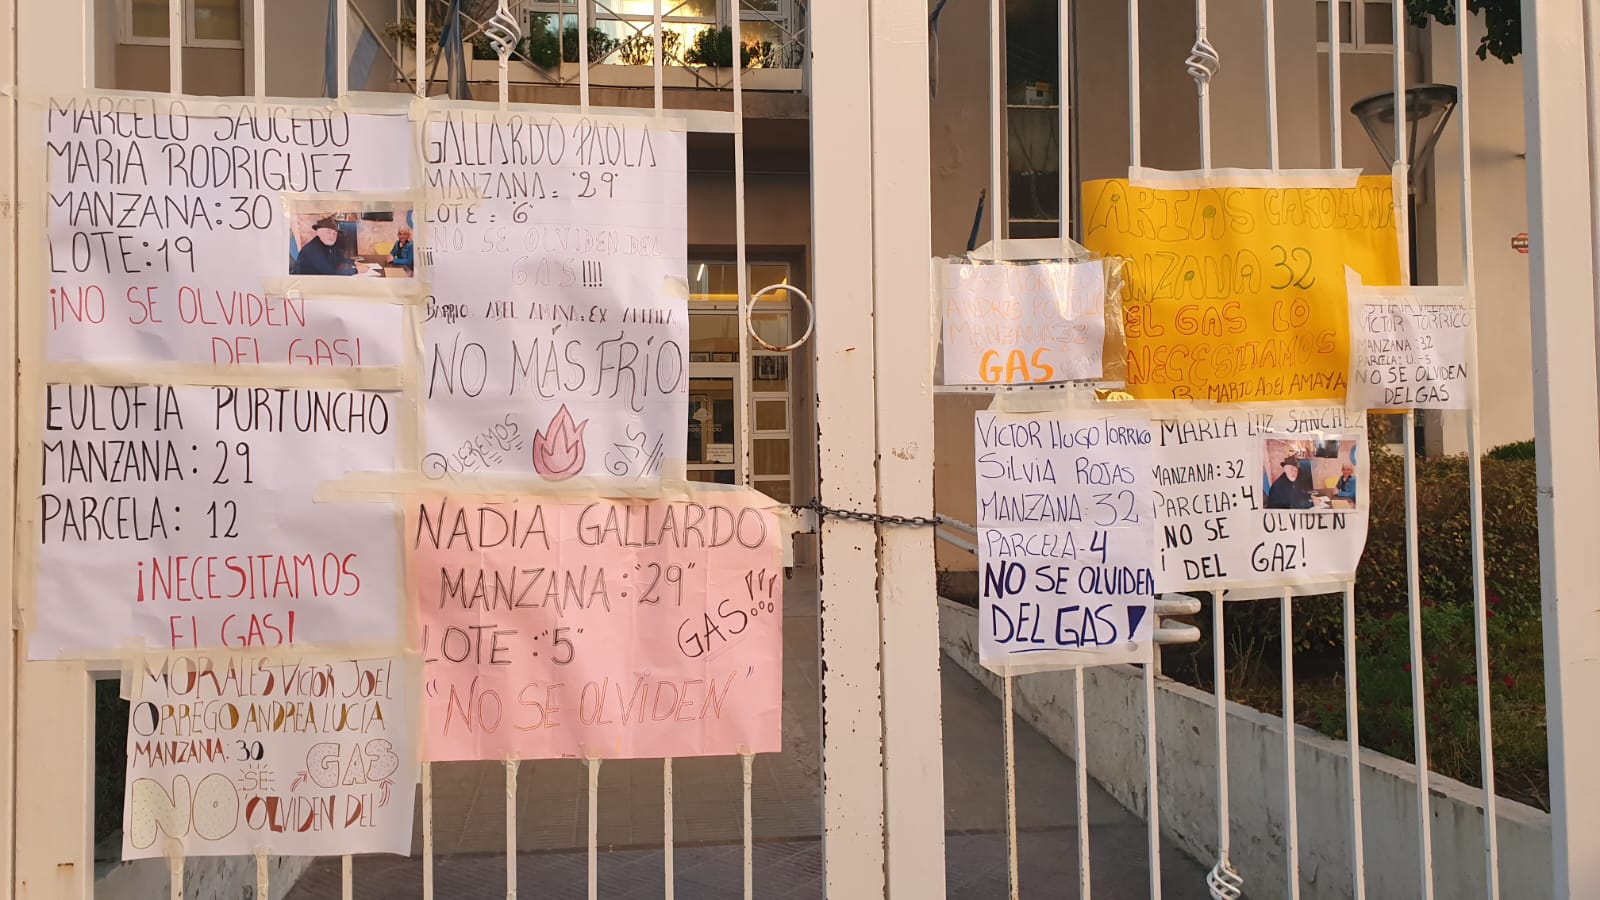 MARCELO SAUCEDO
MARIA RODRIGUEZ
MANZANA: 30
LOTE: 19
¡NO SE OLVIDEN
DEL GAS!
EULOFIA PURTUNCHO
MANZANA: 29
PARCELA: 12
¡NECESITAMOS
El GAS!
MORALES VICTOR JOEL
ORREGO ANDREA LUCIA
MANZANA: 30
NO SE OLVIDEN DEL
GAS
GALLARDO PAOLA
MANZANA = "29"
LOTE = "6"
¡¡¡¡NO SE OLVIDEN DEL
GAS!!!!
BARRIO ABEL AMAYA EX
NO MÁS FRÍO!!
QUEREMOS
GAS!!!
NADIA GALLARDO
MANZANA: "29"
LOTE: "5"
GAS!!!
"NO SE OLVIDEN"
ANDRÉS
MANZANA 33
GAS
ARIAS CAROLINA
MANZANA 32
EL GAS LO
NECESITAMOS
B. MARIO ABEL AMAYA
VICTOR TORRICO
MANZANA: 32
PARCELA: U-5
NO SE OLVIDEN
DEL GAS
VICTOR HUGO TORRICO
SILVIA ROJAS
MANZANA: 32
PARCELA-4
NO SE OLVIDEN
DEL GAS!
MARIA LUZ SANCHEZ
MANZANA: 32
PARCELA: 4
¡NO SE OLVIDEN
DEL GAZ!